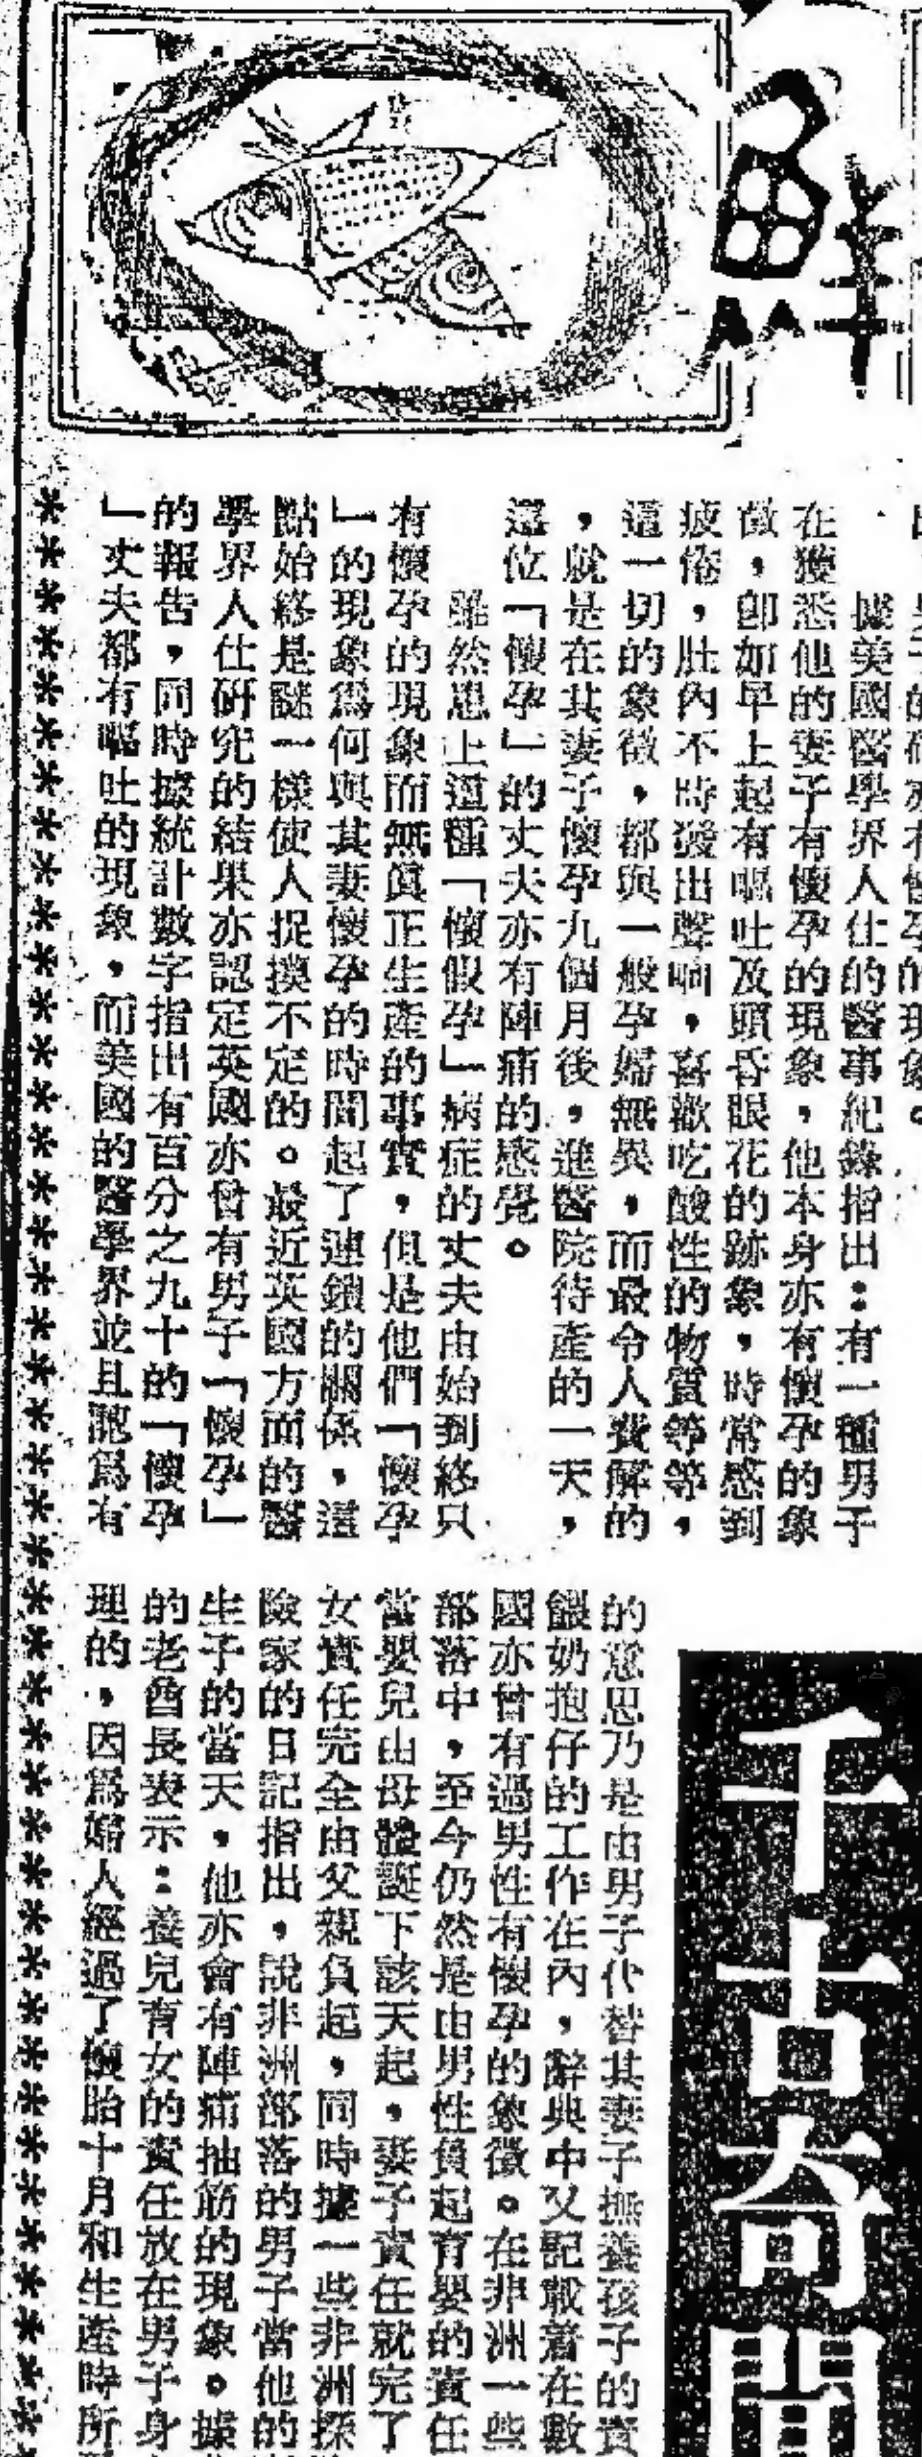 鮮
千古奇聞
據美國醫學界人仕的醫事紀錄指出：有一種男子
在獲悉他的妻子有懷孕的現象，他本身亦有懷孕的象
徵，即如早上起有嘔吐及頭昏眼花的跡象，時常感到
疲倦，肚內不時發出聲响，喜歡吃酸性的物質等等，
這一切的象徵，都與一般孕婦無異，而最令人費解的
，就是在其妻子懷孕九個月後，進醫院待產的一天，
這位「懷孕」的丈夫亦有陣痛的感覺。
雖然患上這種「懷假孕」病症的丈夫由始到終只
有懷孕的現象而無眞正生產的事實，但是他們「懷孕
」的現象爲何與其妻懷孕的時間起了連鎖的關係，這
點始終是謎一樣使人捉摸不定的。最近英國方面的醫
學界人仕研究的結果亦認定英國亦曾有男子「懷孕」
的報告，同時據統計數字指出有百分之九十的「懷孕
」丈夫都有嘔吐的現象，而美國的醫學界並且認爲有
的意思乃是由男子代替其妻子撫養孩子的責
餵奶抱仔的工作在內，辭典中又記載着在數
國亦曾有過男性有懷孕的象徵。在非洲一些
部落中，至今仍然是由男性負起育嬰的責任
當嬰兒由母體誕下該天起，妻子責任就完了
女責任完全由父親負起，同時據一些非洲探
險家的日記指出，說非洲部落的男子當他的
生子的當天，他亦會有陣痛抽筋的現象。據
的老酋長表示：養兒育女的責任放在男子身
理的，因爲婦人經過了懷胎十月和生產時所